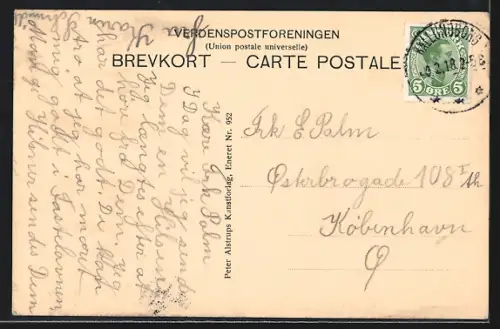 VERDENSPOSTFORENINGEN
(Union postale universelle)
BREVKORT – CARTE POSTALE
KALUNDBORG
9.2.18.2-5.E
5 ØRE 5
Peter Alstrups Kunstforlag, Eneret Nr. 952
Frk E Palm
Østerbrogade 108 I th
København
Ø
Kære Frk Palm
I Dag vil jeg sende
Dem en Hilsen
Jeg længtes efter at
høre fra Dem. Jeg
har det godt. De kan
tro at jeg har moret
mig godt i Fastelavnen
Mange Hilsner sendes Dem
fra Karen